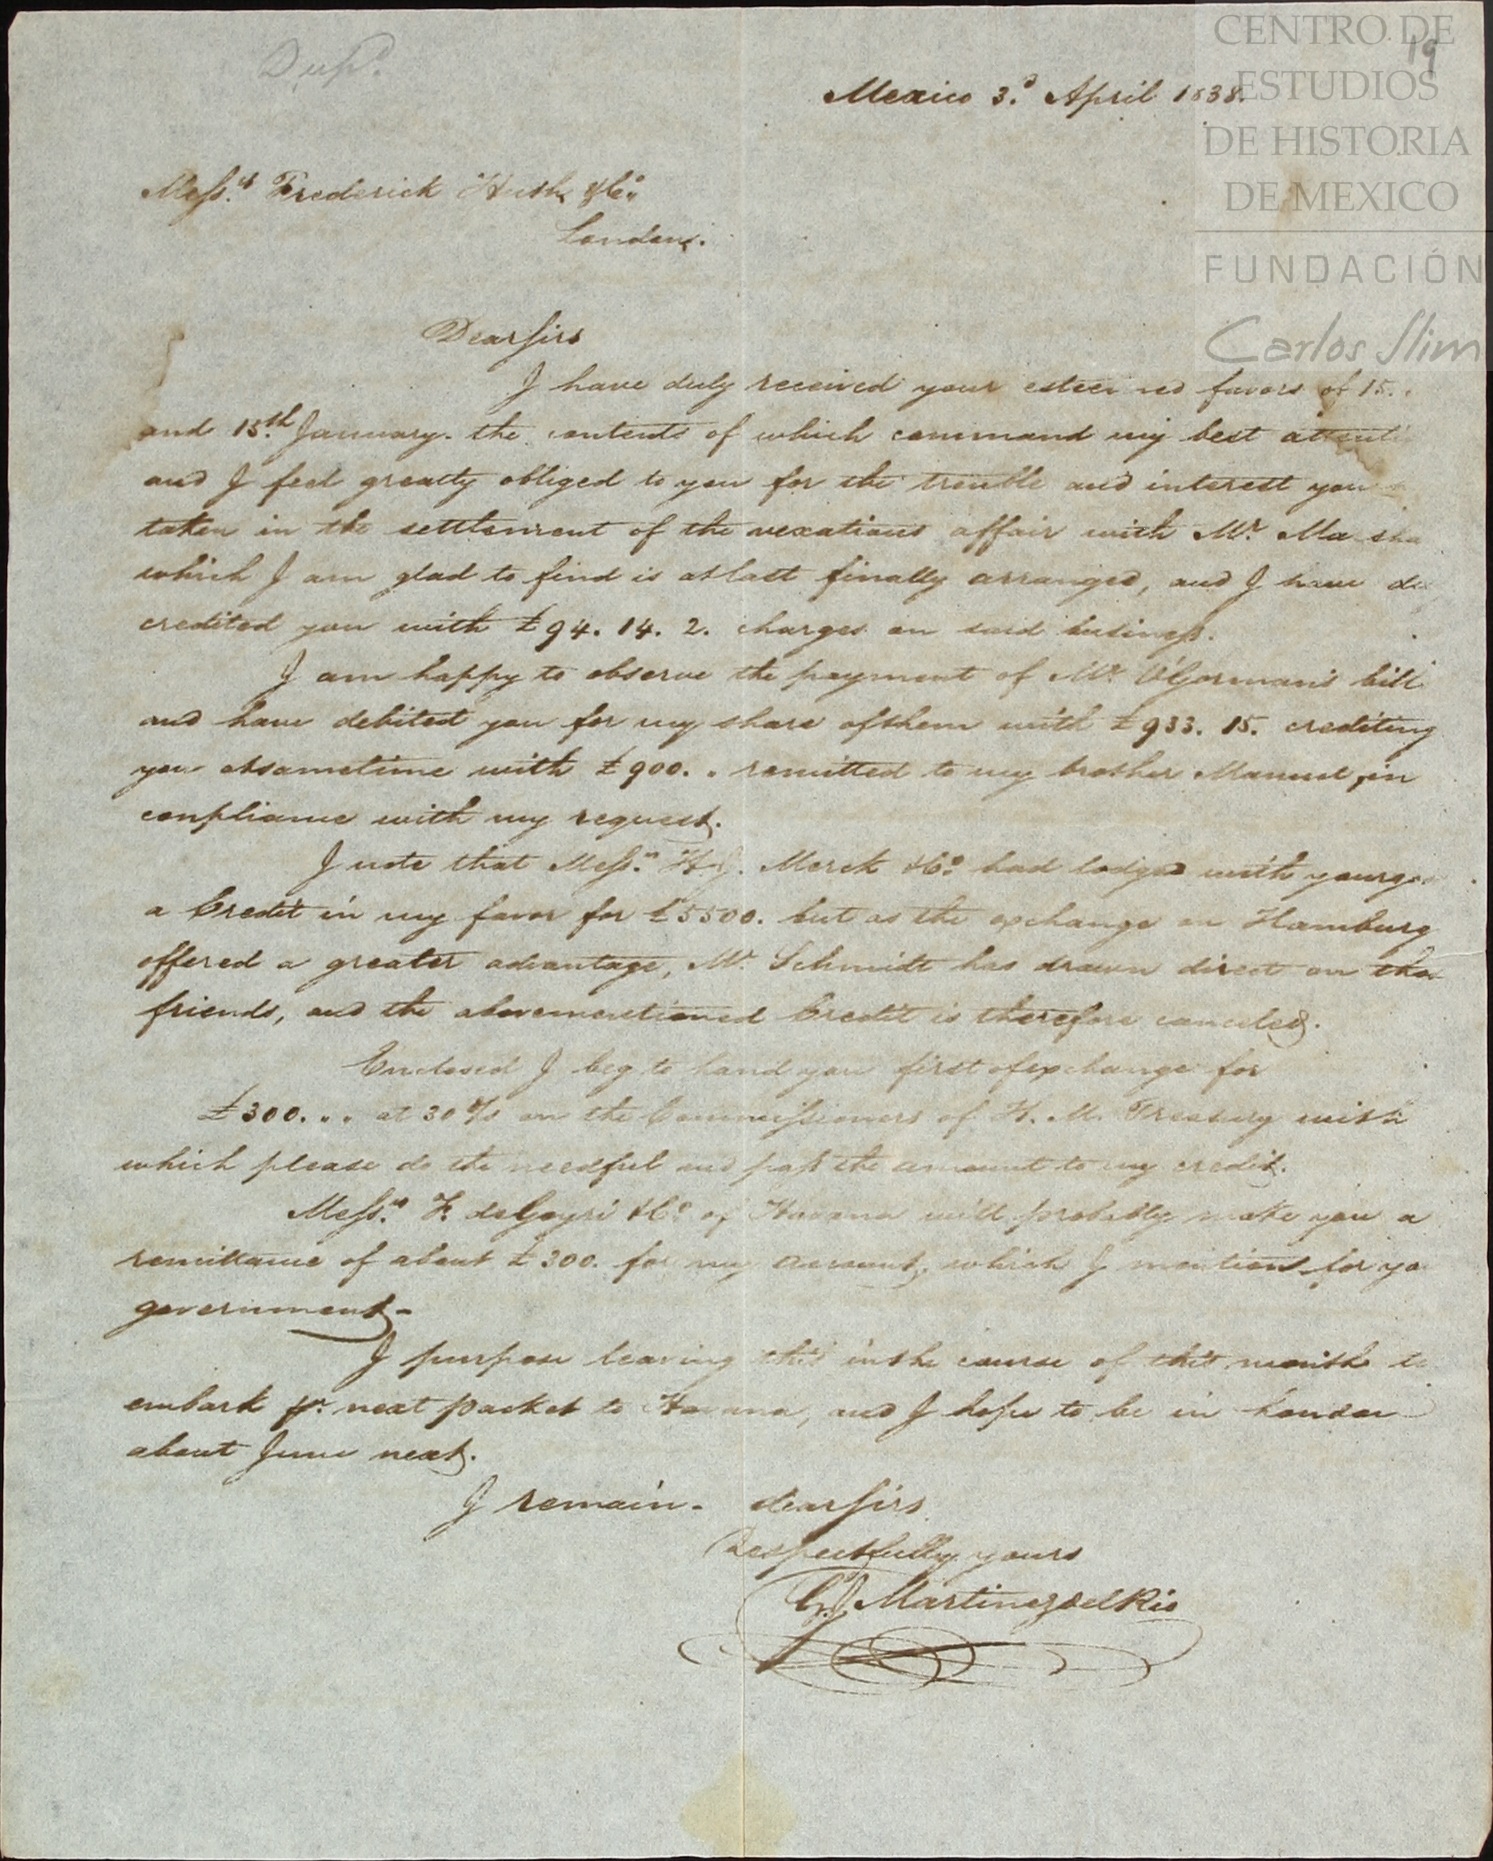 Dup.
19
CENTRO DE
ESTUDIOS
DE HISTORIA
DE MEXICO
FUNDACIÓN
Carlos Slim
Mexico 3.d April 1838.
Mess.rs Frederick Huth &Co.
London.
Dear Sirs
I have duly received your esteemed favors of 15.
and 15.th January. the contents of which command my best attenti
and I feel greatly obliged to you for the trouble and interest you
taken in the settlement of the vexatious affair with Mr. Marsha
which I am glad to find is at last finally arranged, and I have du
credited you with £94. 14. 2. charges on said business.
I am happy to observe the payment of Mr. O'Gorman's bill
and have debited you for my share of them with £933. 15. crediting
you at sametime with £900. . remitted to my brother Manuel, in
conpliance with my request.
I note that Mess.rs H. J. Merck &Co. had lodged with your
a Credit in my favor for £5500. but as the exchange on Hamburg
offered a greater advantage, Mr. Schmidt has drawn direct on
friends, and the abovementioned Credit is therefore canceled.
Enclosed I beg to hand you first of exchange for
£300. . . at 30 d/s on the Commissioners of H. M. Treasury with
which please do the needful and pass the amount to my credit.
Mess.rs F. de Goyri &Co. of Havana will probably make you a
remittance of about £300. for my account, which I mention for yo
government.-
I purpose leaving this in the course of this month to
embark pr. next packet to Havana, and I hope to be in London
about June next.
I remain. dear Sirs
Respectfully yours
G. J. Martinez del Rio